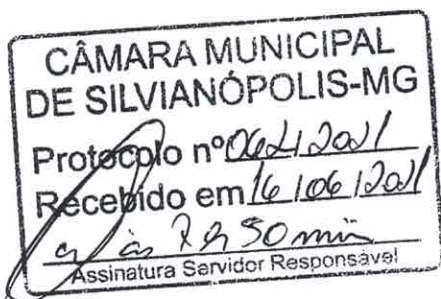 CÂMARA MUNICIPAL
DE SILVIANÓPOLIS-MG
Protocolo nº 062/2021
Recebido em 16/06/2021
às 50 min
Assinatura Servidor Responsável